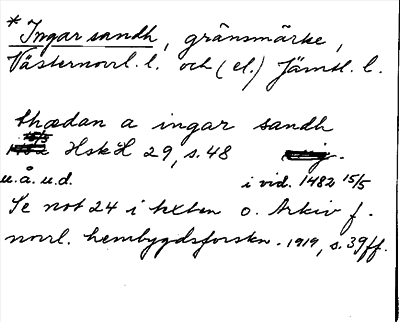 * Ingar sandh, gränsmärke,
Västernorrl. l. och (el.) Jämtl. l.
thædan a ingar sandh
15/5
1482 HskH 29, s. 48
u.å.u.d. i vid. 1482 15/5
Se not 24 i texten o. Arkiv f.
norrl. hembygdsforskn. 1919, s. 39 ff.